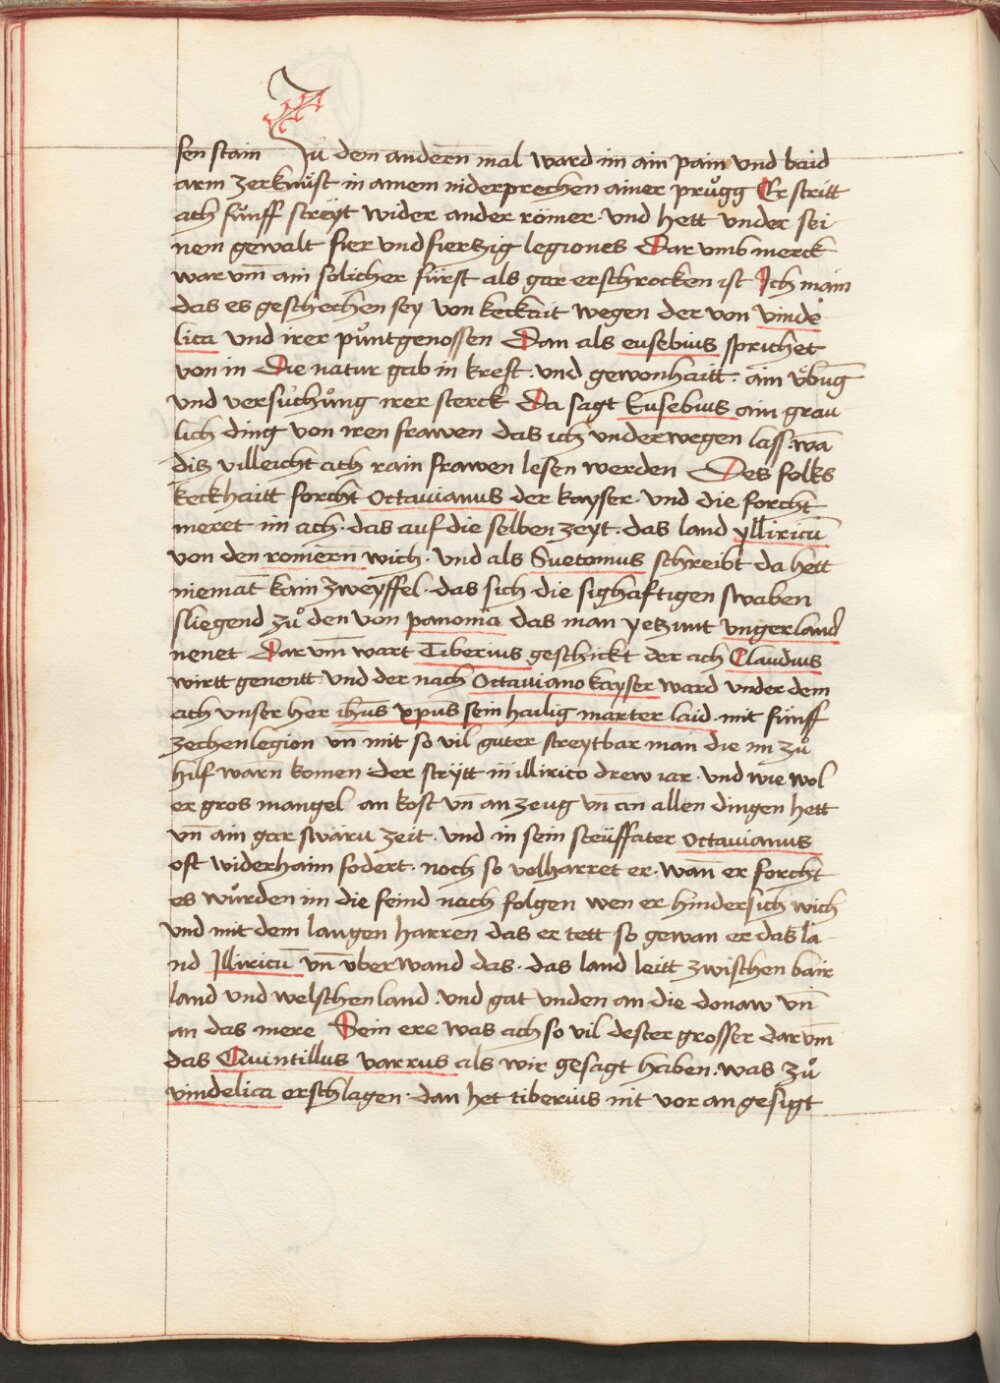 sen stain Zů dem andern mal ward im ain pain und baid
arm zerknüst in ainem niderprechen ainer průgg Er stritt
ach fünff streyt wider ander römer · und hett under sei-
nem gewalt fier und fierszig legiones Dar umb merck
war vm̄ ain solicher fürst als gar erschrocken ist Ich main
das es geschechen sey von keckait wegen der von vinde
lica und irer půntgenossen Dan als eusebius sprichet
von in Die natur gab in kreft · und gewonhaitt · ain ůbūg
und versůchůng irer sterck Da sagt Eusebius ain grau
lich ding von iren frawen das ich underwegen lass · wā
dis villeicht ach rain frawen lesen werden Des folks
keckhaitt forcht octavianus der kayser · und die forcht
meret im ach · das auf die selben zeyt · das land ylliricū
von den romern wich · und als Suetonius schreibt da hett
niemāt kain zweyffel · das sich die sighaftigen swaben
sliegend zů den von panonia das man yetzunt ungerland
nenet Dar vm̄ wart Tiberius geschickt der ach Claudius
wirtt genentt und der nach Octaviano kayser ward under dem
ach unser her ihūs xpūs sein hailig marter laid · mit fünff
zechen legion vn̄ mit so vil guter streytbar man die im zů
hilf warn komen · der strytt in illirico drew iar · und wie wol
er gros mangel an kost vn̄ an zeug vn̄ an allen dingen hett
vn̄ ain gar swäru zeit · und in sein steüffater octavianus
oft widerhaim fodert · noch so volharret er · wan̄ er forcht
es wůrden im die feind nach folgen wen er hindersich wich
und mit dem langen harren das er tett so gewan er das la-
nd Illiricū vn̄ überwand das · das land leitt zwischen bair
land und welschen land · und gat unden an die donaw vn̄
an das mere Sein ere was ach so vil dester grosser dar vm̄
das Quintillus varrus als wir gesagt haben · was zů
vindelica erschlagen · dan het tiberius nit vor an gesigt